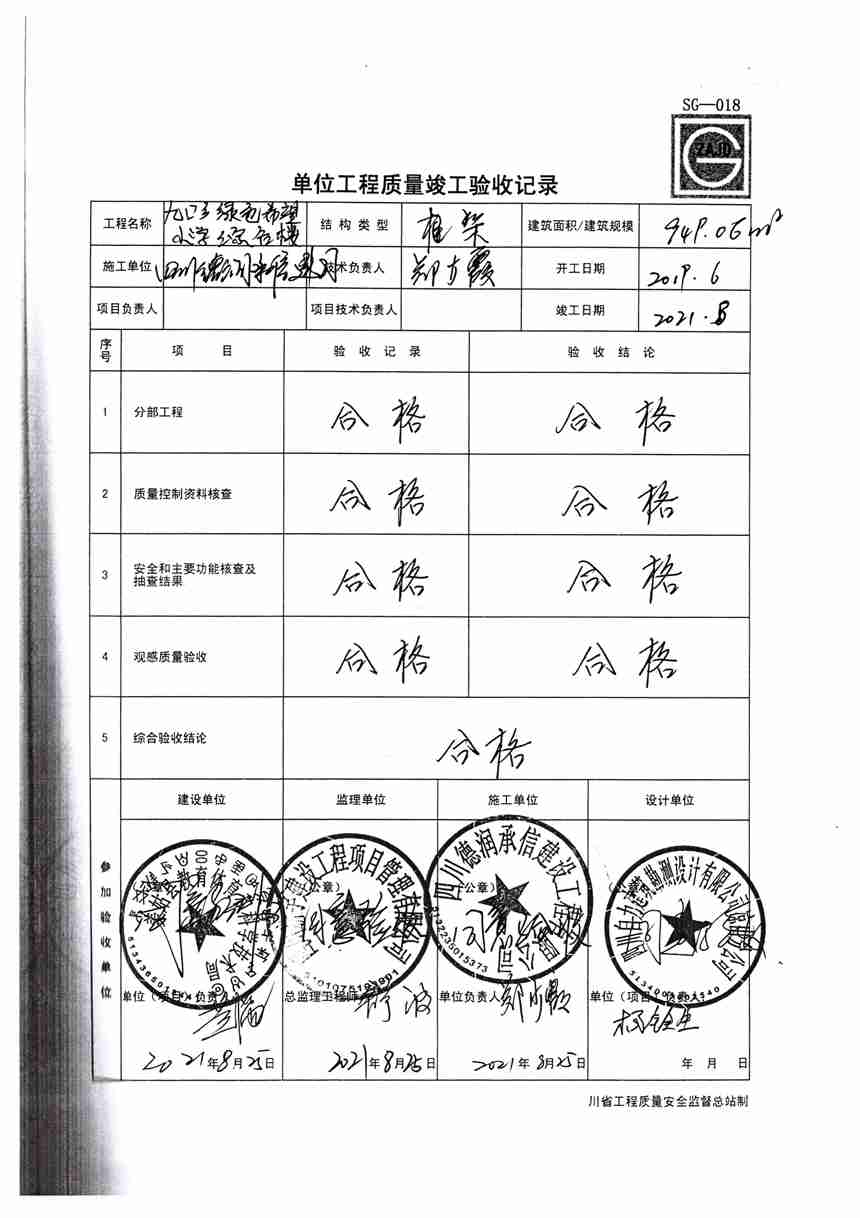 SG—018
ZAJD
单位工程质量竣工验收记录
工程名称 希望 结构类型 框架 建筑面积/建筑规模 949.06m²
小学综合楼
施工单位 技术负责人 郑方霞 开工日期 2019.6
项目负责人 项目技术负责人 竣工日期 2021.8
序号 项 目 验 收 记 录 验 收 结 论
1 分部工程 合格 合格
2 质量控制资料核查 合格 合格
3 安全和主要功能核查及 合格 合格
抽查结果
4 观感质量验收 合格 合格
5 综合验收结论 合格
参加验收单位
建设单位 监理单位 施工单位 设计单位
教育体育 科学技术局
建设工程项目管理有限公司
四川德润承信建设工程有限公司
勘测设计有限公司
(公章) (公章) (公章)
5132235015373
单位(项目)负责人 总监理工程师 单位负责人 郑方霞 单位(项目)负责人
2021年8月25日 2021年8月25日 2021年8月25日 年 月 日
川省工程质量安全监督总站制